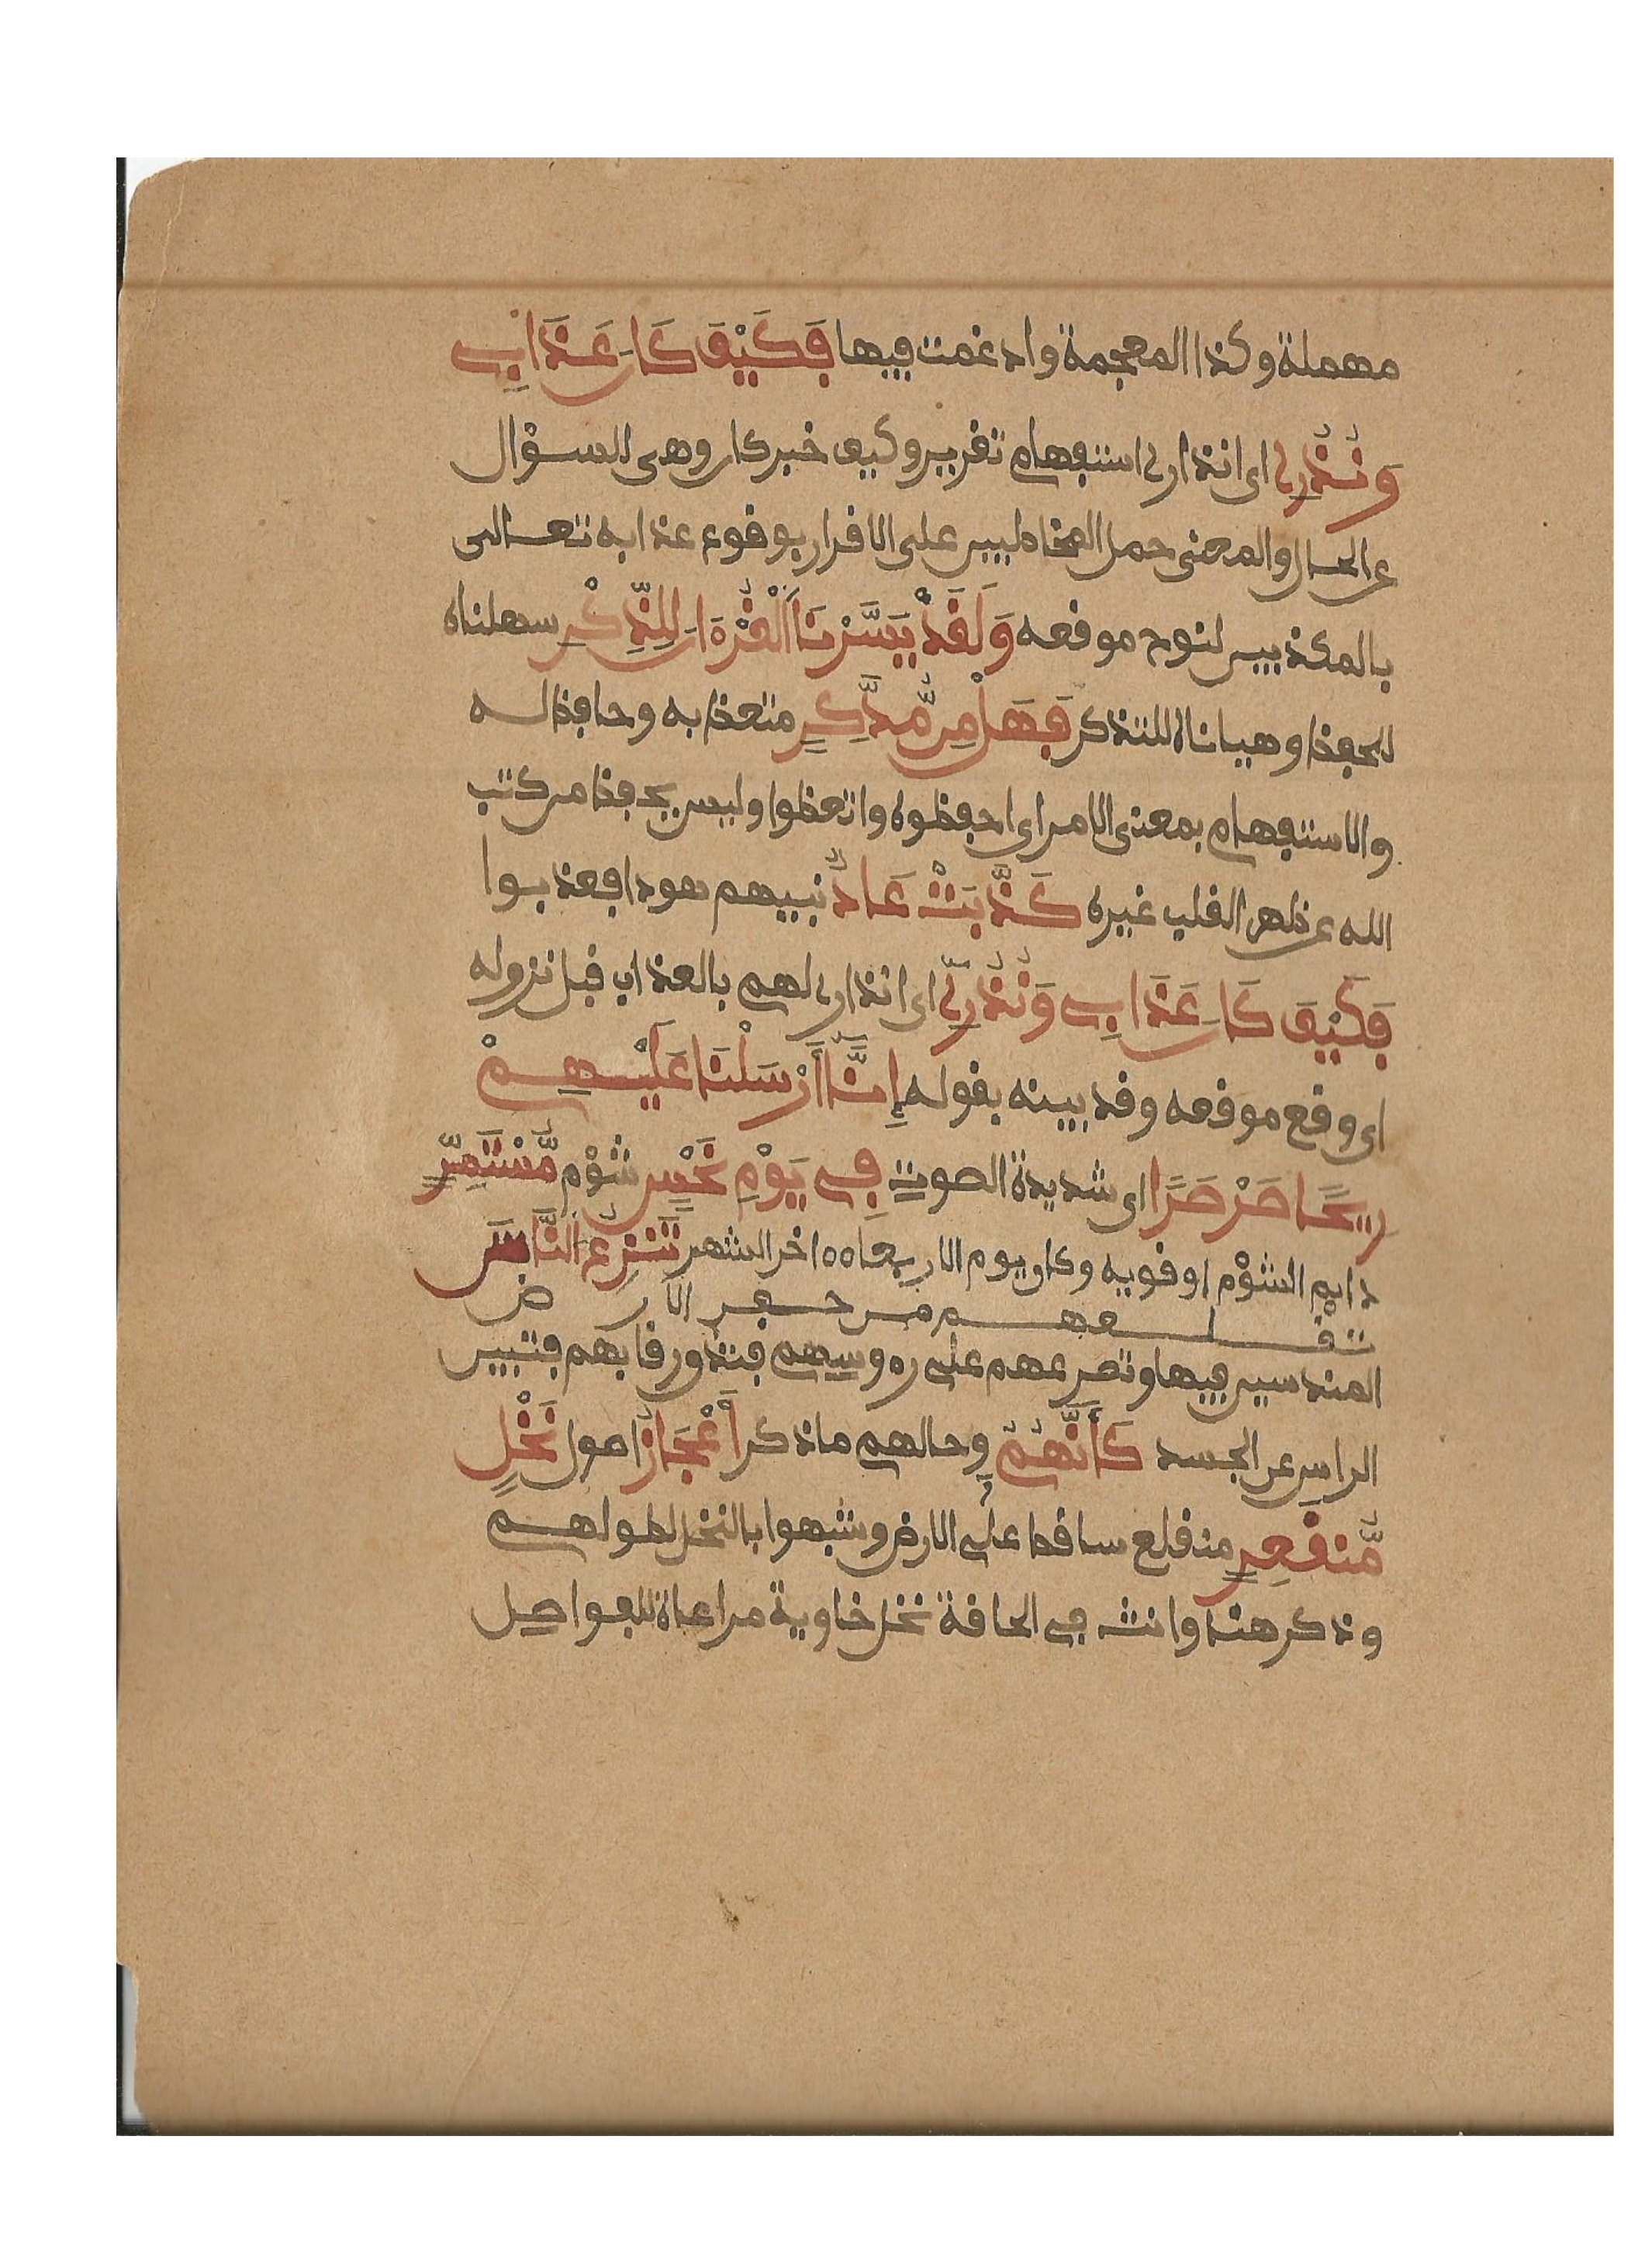 مهملة وكذا المعجمة وادغمت فيها فَكَيْفَ كَانَ عَذَابِي
وَنُذُرِ اى انذارى استفهام تقرير وكيف خبر كان وهى للسؤال
عن الحال والمعنى حمل المخاطبين على الاقرار بوقوع عذابه تعالى
بالمكذبين لنوح موقعه وَلَقَدْ يَسَّرْنَا الْقُرْءَانَ لِلذِّكْرِ سهلناه
للحفظ وهياناه للتذكر فَهَلْ مِن مُّدَّكِرٍ متعظ به وحافظ له
والاستفهام بمعنى الامر اى احفظوه واتعظوا وليس يحفظ من كتب
الله عن ظهر القلب غيره كَذَّبَتْ عَادٌ نبيهم هودا فعذبوا
فَكَيْفَ كَانَ عَذَابِي وَنُذُرِ اى انذارى لهم بالعذاب قبل نزوله
اى وقع موقعه وقد بينه بقوله إِنَّا أَرْسَلْنَا عَلَيْهِمْ
رِيحًا صَرْصَرًا اى شديدة الصوت فِي يَوْمِ نَحْسٍ شؤم مُّسْتَمِرٍّ
دايم الشؤم او قويه وكان يوم الاربعاء ءاخر الشهر تَنزِعُ النَّاسَ
تقلعهم من حفر الارض
المندسين فيها وتصرعهم على رءوسهم فتدو رقابهم فتبين
الراس عن الجسد كَأَنَّهُمْ وحالهم ما ذكر أَعْجَازُ اصول نَخْلٍ
مُّنقَعِرٍ منقلع ساقط على الارض وشبهوا بالنخل لطولهم
وذكر هنا وانث في الحاقة نخل خاوية مراعاة للفواصل